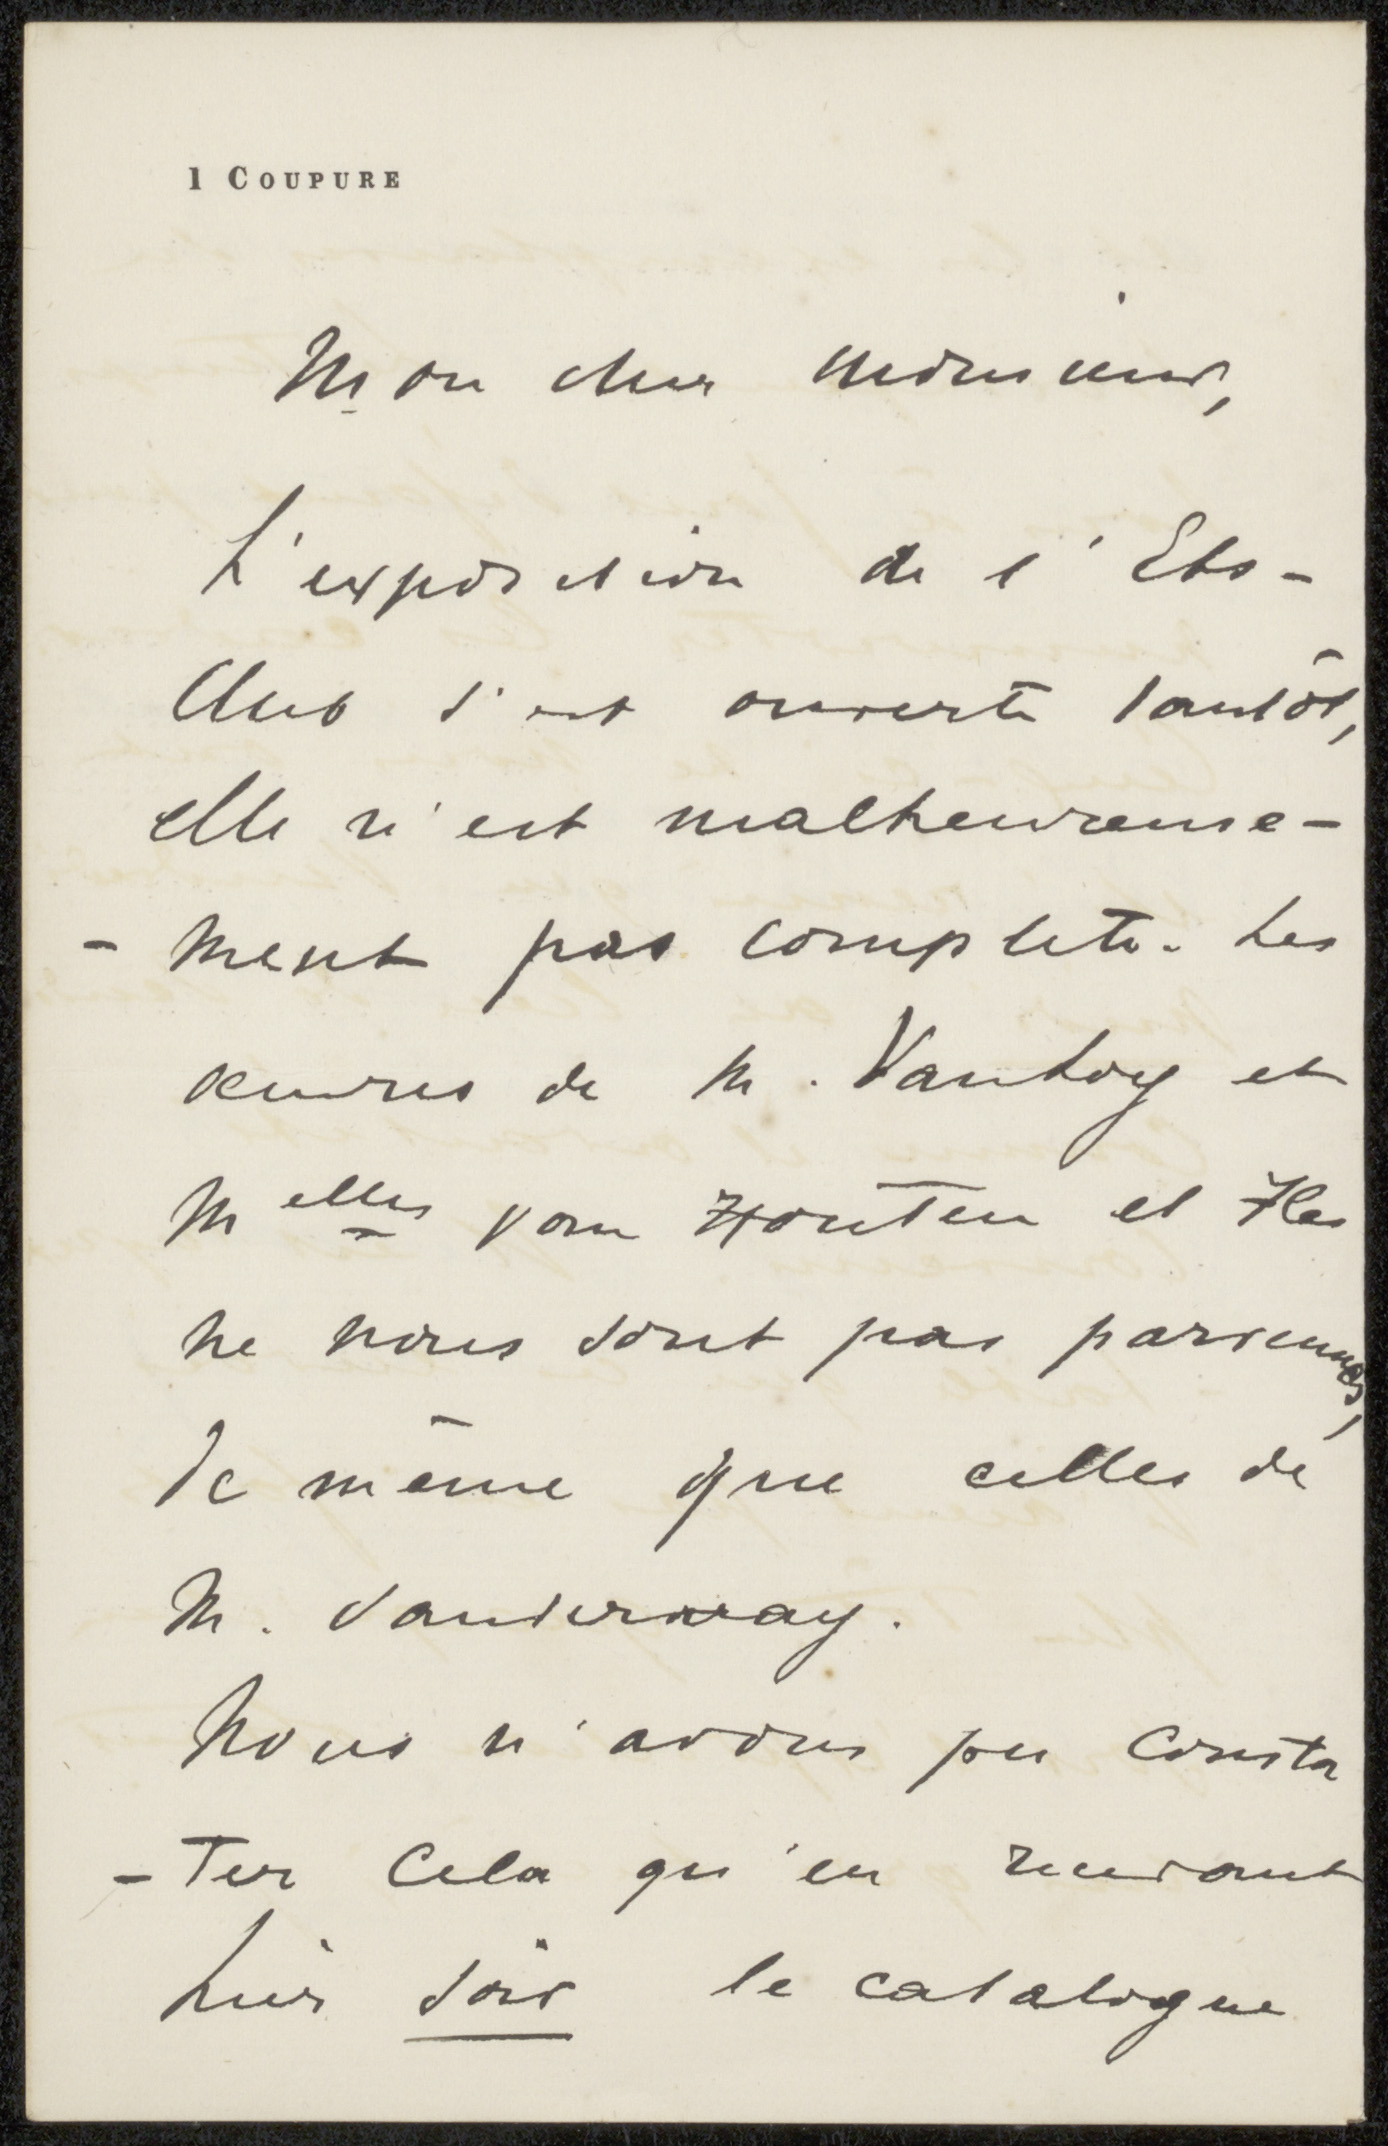 1 COUPURE
Mon cher Monsieur,
L'exposition de l'Ets-
Club s'est ouverte tantôt,
elle n'est malheureuse-
- ment pas complète. Les
œuvres de M. Van Loy et
Melles van Houten et Hes
ne nous sont pas parvenues,
de même que celles de
M.
Nous n'avons pu consta
- ter cela qu'en recevant
hier soir le catalogue